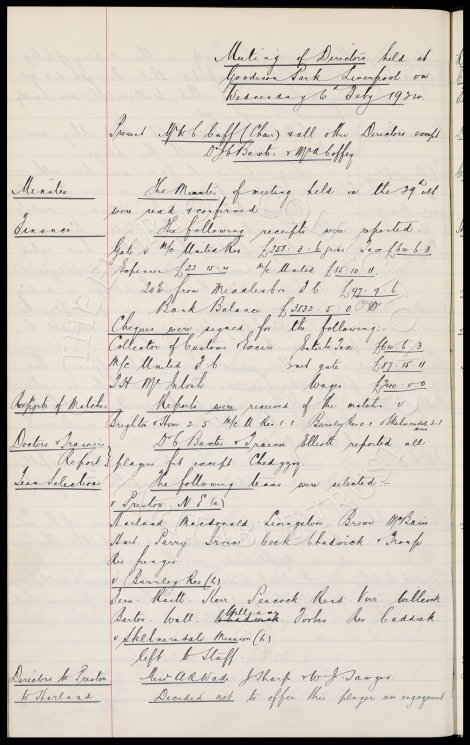 Meeting of Directors held at
Goodison Park Liverpool on
Wednesday 6th Feby 1924.
Present Mr W. C. Cuff (Chair) & all other Directors except
Dr J. C. Baxter & Mr A Coffey
Minutes The Minutes of meeting held on the 29th ult
were read & confirmed
Finance The following receipts were reported.
Gate v M/c United Res £355. 3. 6 gross Tax £64. 6. 3
Expenses £23. 15. 4 M/c United £15. 10. 11
20% from Middlesbro F. C. £97. 9. 6
Bank Balance £3532. 5. 0 OD
Cheques were signed for the following:-
Collector of Customs & Excise Entert: Tax £64. 6. 3
M/c United F. C. gate £87. 15. 11
T. H. McIntosh Wages £200. 0. 0
Reports of Matches Reports were received of the matches v.
Brighton & Hove 2. 5 M/c U Res 1. 1 Burnley Res 0. 1 Skelmersdale 2. 1
Doctors & Trainers Dr Baxter & Trainer Elliott reported all
Report players fit except Chedgzoy.
Team Selections The following teams were selected:-
v Preston N E (a)
Harland Macdonald Livingstone Brown McBain
Hart Parry Irvine Cock Chadwick & Troup
Res
v Burnley Res (h)
Fern Raitt Kerr Peacock Reid Virr Willcock
Barton Wall Williams Forbes Res Caddick.
v Skelmersdale Mission (h)
left to Staff.
Directors to Preston Messrs A R Wade J Sharp & W. J. Sawyer.
W Harland Decided not to offer this player an engagement